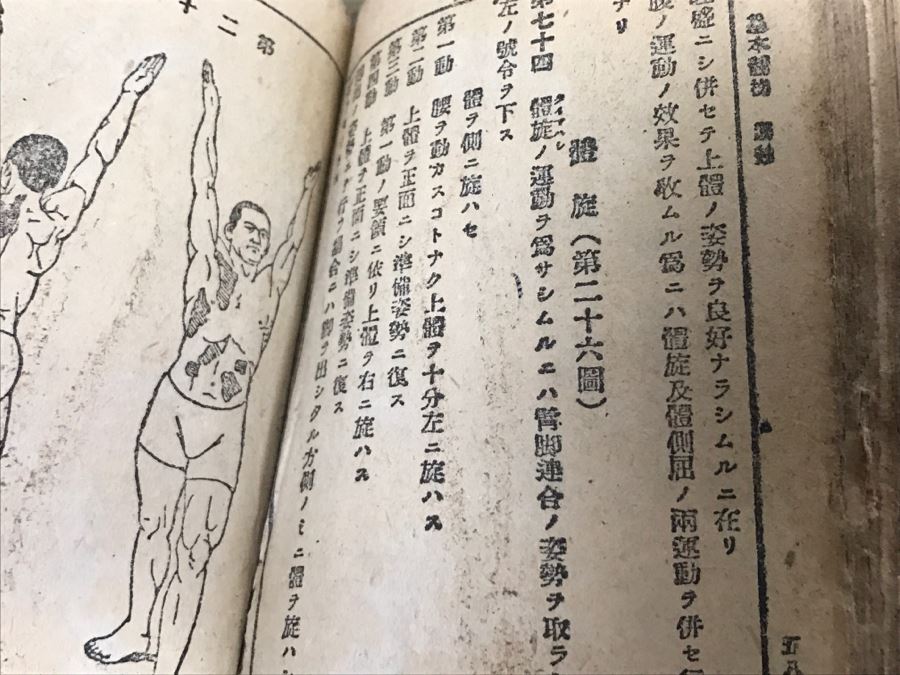 基本體操 運動
盛ニシ併セテ上體ノ姿勢ヲ良好ナラシムルニ在リ
腹ノ運動ノ效果ヲ收ムル爲ニハ體旋及體側屈ノ兩運動ヲ併セ
ナリ
體旋(第二十六圖)
第七十四 體旋ノ運動ヲ爲サシムルニハ臂脚連合ノ姿勢ヲ取ラ
左ノ號令ヲ下ス
體ヲ側ニ旋ハセ
第一動 腰ヲ動カスコトナク上體ヲ十分左ニ旋ハス
第二動 上體ヲ正面ニシ準備姿勢ニ復ス
第三動 第一動ノ要領ニ依リ上體ヲ右ニ旋ハス
第四動 上體ヲ正面ニシ準備姿勢ニ復ス
行フ場合ニハ脚ヲ出シタル方側ノミニ體ヲ旋ハ
第二十
五八